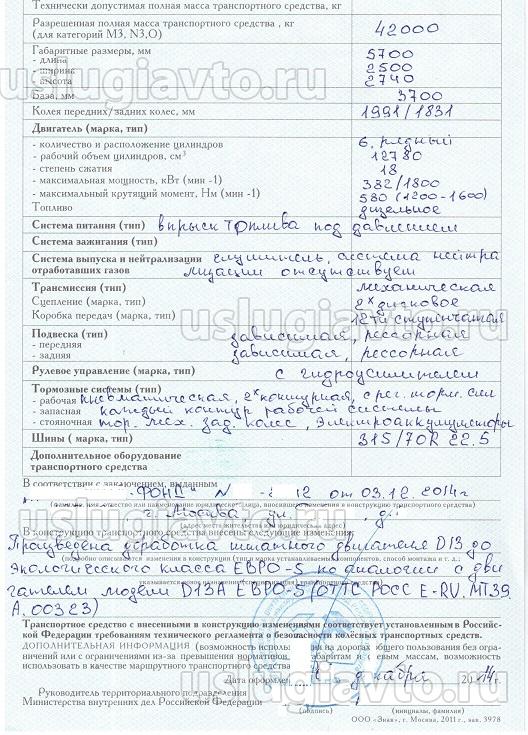 Технически допустимая полная масса транспортного средства, кг
Разрешенная полная масса транспортного средства , кг
(для категорий М3, N3,О) 42000
Габаритные размеры, мм
- длина 5700
- ширина 2500
- высота 2740
База, мм 3700
Колея передних/задних колес, мм 1991/1831
Двигатель (марка, тип)
- количество и расположение цилиндров 6, рядный
- рабочий объем цилиндров, см³ 12780
- степень сжатия 18
- максимальная мощность, кВт (мин -1) 382/1800
- максимальный крутящий момент, Нм (мин -1) 580 (1200-1600)
Топливо дизельное
Система питания (тип) впрыск топлива под давлением
Система зажигания (тип)
Система выпуска и нейтрализации глушитель, система нейтра
отработавших газов лизации отсутствует
Трансмиссия (тип) механическая
Сцепление (марка, тип) 2х дисковое
Коробка передач (марка, тип) 12ти ступенчатая
Подвеска (тип)
- передняя зависимая, рессорная
- задняя зависимая, рессорная
Рулевое управление (марка, тип) с гидроусилителем
Тормозные системы (тип)
- рабочая пневматическая, 2х контурная, с рег. торм. сил
- запасная каждый контур рабочей системы
- стояночная тор. мех. зад. колес, Энергоаккумуляторы
Шины ( марка, тип) 315/70R 22.5
Дополнительное оборудование
транспортного средства
В соответствии с заключением, выданным
"ФОНД" N 12 от 03.12.2014г
г. Москва ул. д.
(адрес места жительства или юридический адрес)
В конструкцию транспортного средства внесены следующие изменения:
Произведена доработка штатного двигателя D13 до
экологического класса ЕВРО-5 по аналогии с дви
гателем модели D13A ЕВРО-5 (ОТТС РОСС E-RU.MT39.
А.00323)
Транспортное средство с внесенными в конструкцию изменениями соответствует установленным в Россий-
ской Федерации требованиям технического регламента о безопасности колёсных транспортных средств.
ДОПОЛНИТЕЛЬНАЯ ИНФОРМАЦИЯ (возможность использования на дорогах общего пользования без огра-
ничений или с ограничениями из-за превышения нормативов по габаритам и осевым массам, возможность
использовать в качестве маршрутного транспортного средства
Дата оформления декабря 2014г.
Руководитель территориального подразделения
Министерства внутренних дел Российской Федерации
(подпись) (инициалы, фамилия)
ООО «Знак», г. Москва, 2011 г., зак. 3978
uslugiavto.ru
uslugiavto.ru
uslugiavto.ru
uslugiavto.ru